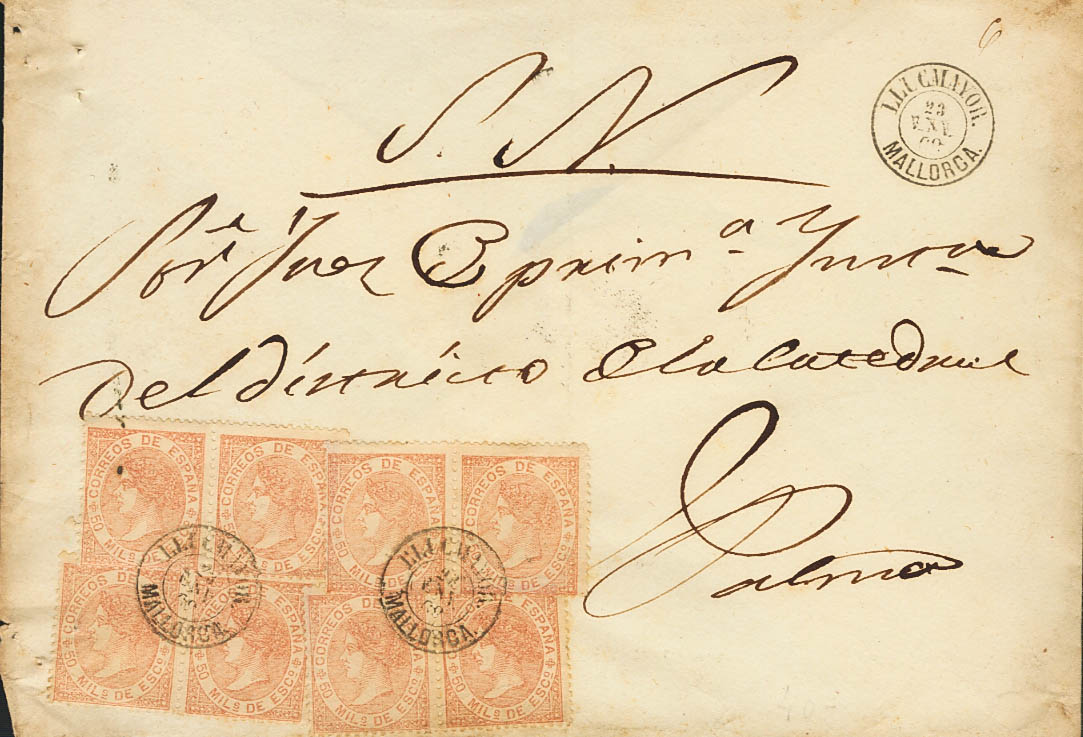 S. N.
LLUCMAYOR.
23
ENE
69
MALLORCA.
Sor. Juez D prim.a Ynsn.a
del distrécto D la Catedral
Palma
CORREOS DE ESPAÑA
50 MILS DE ESCO
CORREOS DE ESPAÑA
50 MILS DE ESCO
CORREOS DE ESPAÑA
50 MILS DE ESCO
CORREOS DE ESPAÑA
50 MILS DE ESCO
LLUCMAYOR.
MALLORCA.
LLUCMAYOR.
MALLORCA.
CORREOS DE ESPAÑA
50 MILS DE ESCO
CORREOS DE ESPAÑA
50 MILS DE ESCO
CORREOS DE ESPAÑA
50 MILS DE ESCO
CORREOS DE ESPAÑA
50 MILS DE ESCO